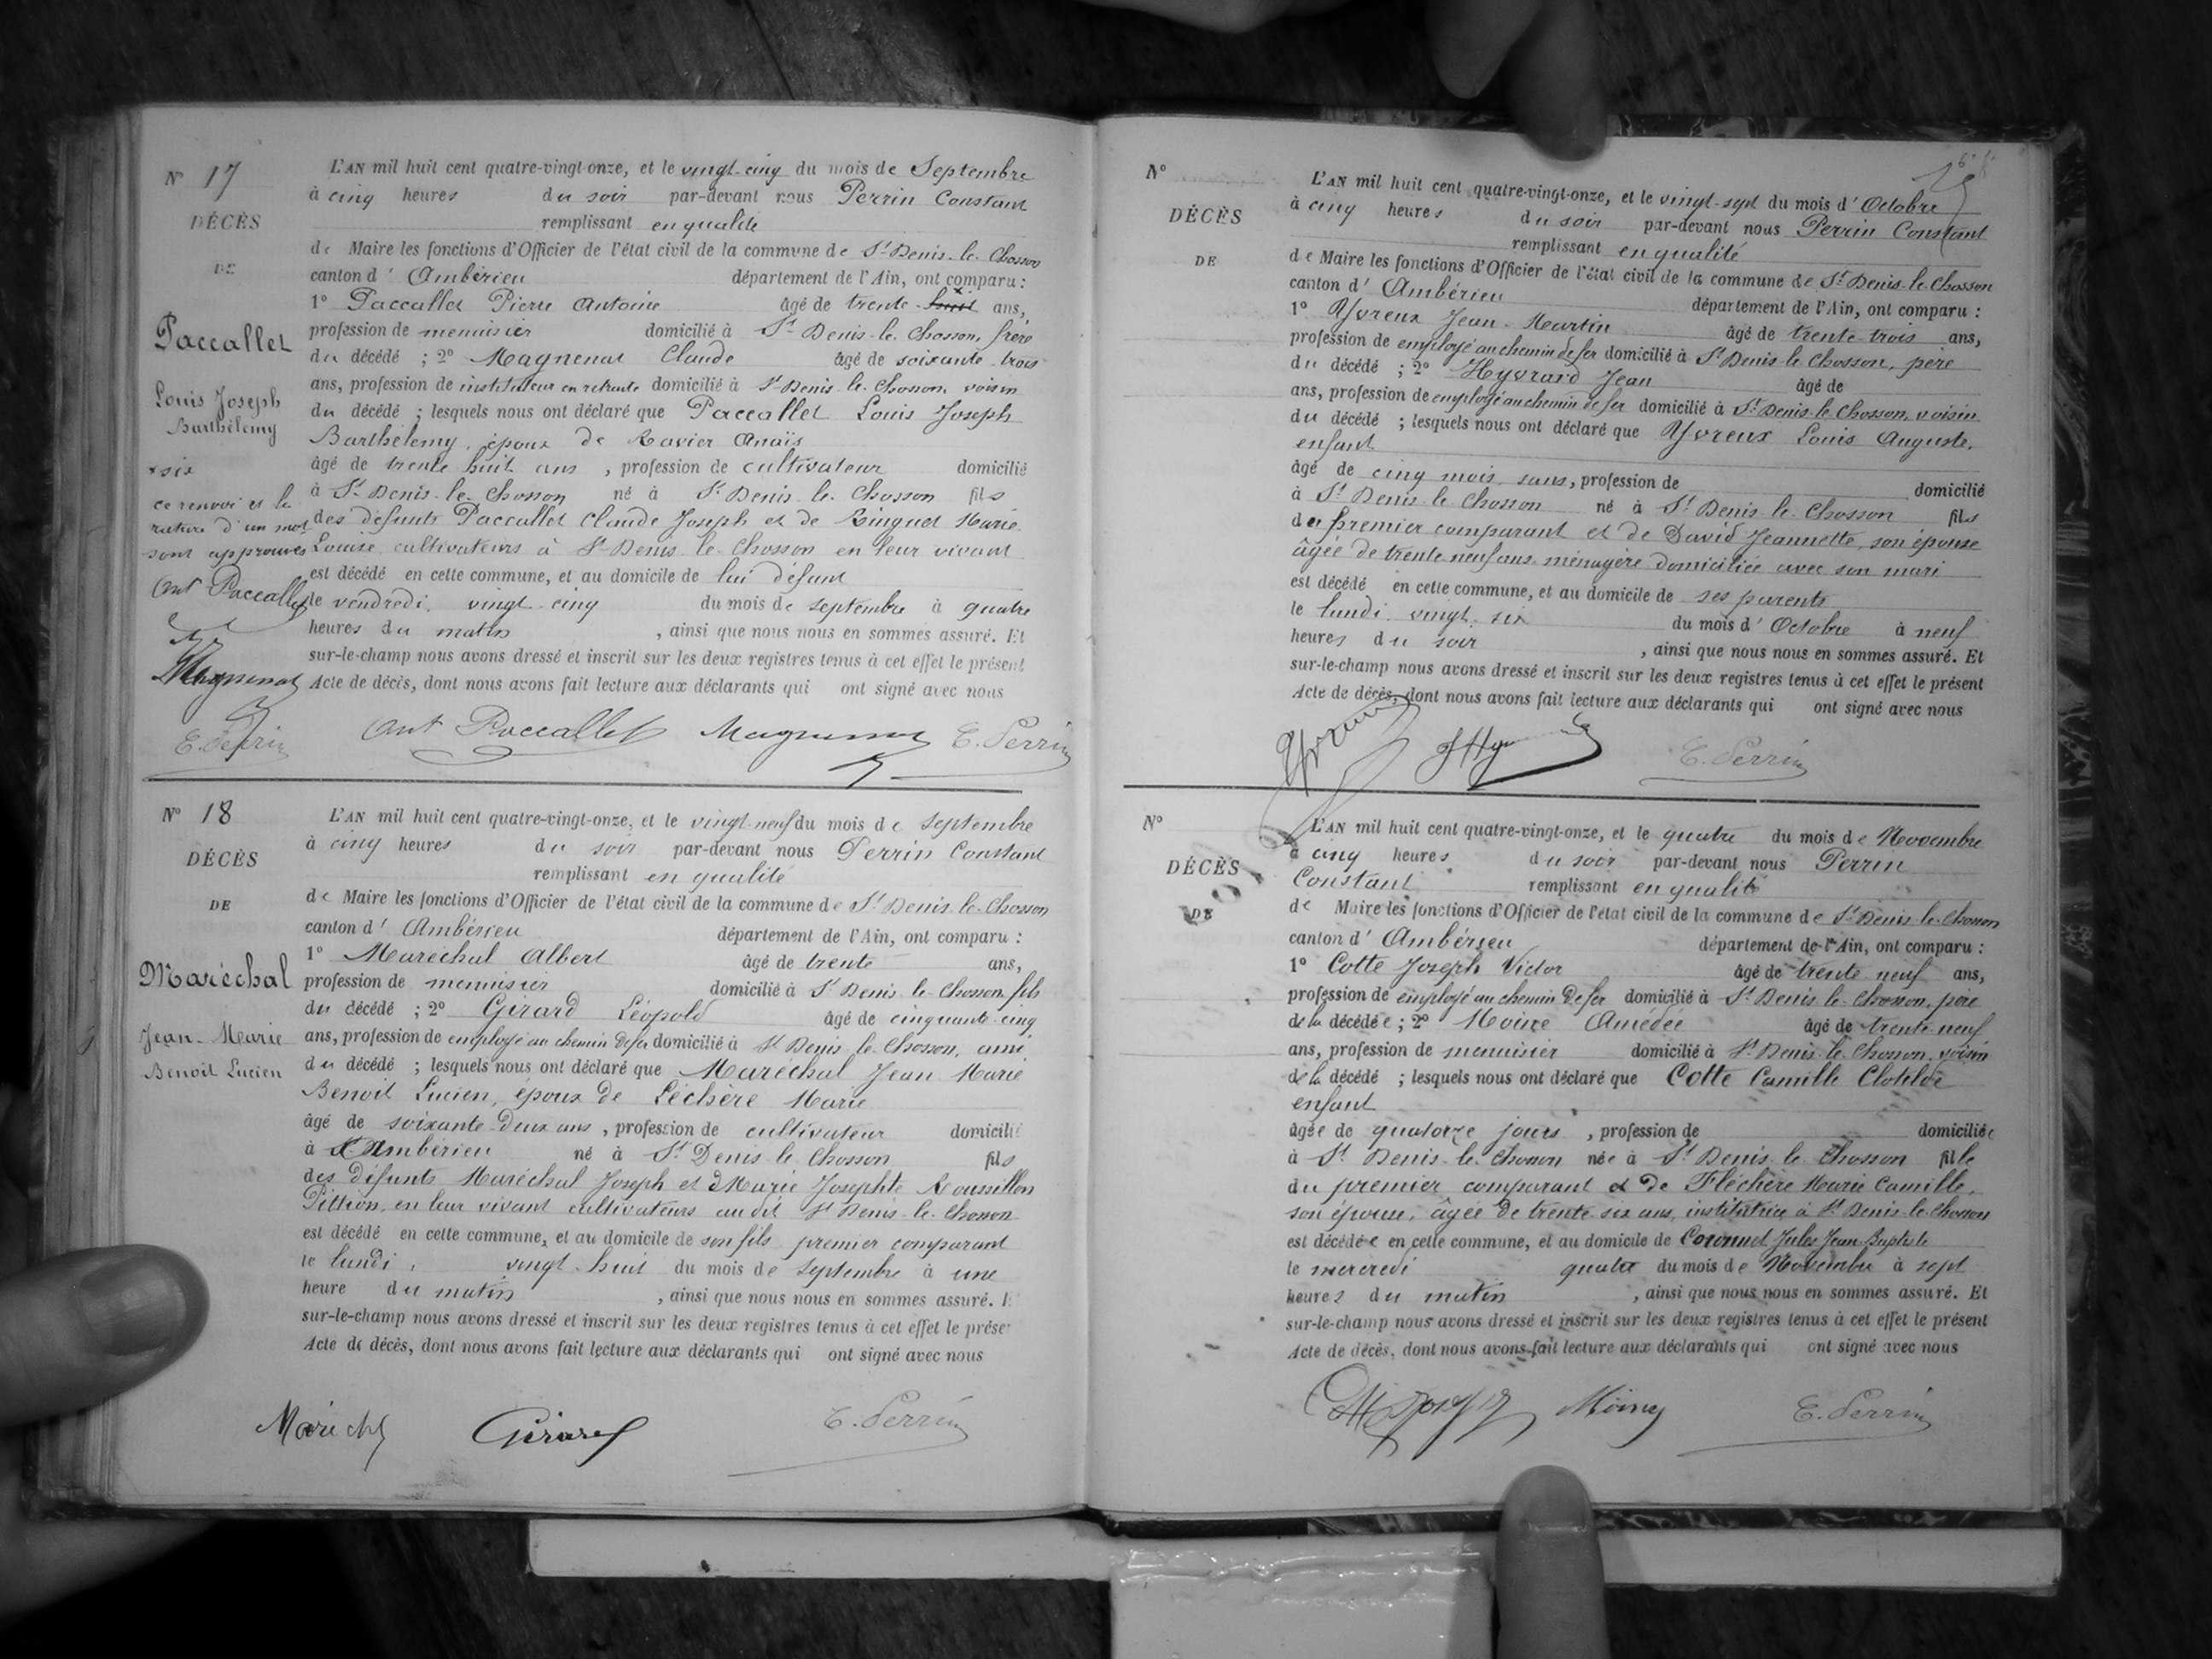 N° 17
DÉCÈS
DE
Paccallet
Louis Joseph
Barthélemy
x six
ce renvoi et la
rature d'un mot
sont approuvés
Ant Paccallet
Magnenat
E. Perrin
L'AN mil huit cent quatre-vingt-onze, et le vingt-cinq du mois de Septembre
à cinq heures du soir par-devant nous Perrin Constant
remplissant en qualité
de Maire les fonctions d'Officier de l'état civil de la commune de St Denis-le-Chosson
canton d'Ambérieu département de l'Ain, ont comparu :
1° Paccallet Pierre Antoine âgé de trente-huit x ans,
profession de menuisier domicilié à St Denis-le-Chosson, frère
du décédé ; 2° Magnenat Claude âgé de soixante-trois
ans, profession de instituteur en retraite domicilié à St Denis-le-Chosson, voisin
du décédé ; lesquels nous ont déclaré que Paccallet Louis Joseph
Barthélemy, époux de Ravier Anaïs
âgé de trente huit ans, profession de cultivateur domicilié
à St Denis-le-Chosson né à St Denis-le-Chosson fils
des défunts Paccallet Claude Joseph et de Ringuet Marie
Louise, cultivateurs à St Denis-le-Chosson en leur vivant
est décédé en cette commune, et au domicile de lui défunt
le vendredi, vingt-cinq du mois de septembre à quatre
heures du matin, ainsi que nous nous en sommes assuré. Et
sur-le-champ nous avons dressé et inscrit sur les deux registres tenus à cet effet le présent
Acte de décès, dont nous avons fait lecture aux déclarants qui ont signé avec nous
Ant Paccallet Magnenat E. Perrin
N° 18
DÉCÈS
DE
Maréchal
Jean-Marie
Benoit Lucien
L'AN mil huit cent quatre-vingt-onze, et le vingt-neuf du mois de septembre
à cinq heures du soir par-devant nous Perrin Constant
remplissant en qualité
de Maire les fonctions d'Officier de l'état civil de la commune de St Denis-le-Chosson
canton d'Ambérieu département de l'Ain, ont comparu :
1° Maréchal Albert âgé de trente ans,
profession de menuisier domicilié à St Denis-le-Chosson, fils
du décédé ; 2° Girard Léopold âgé de cinquante-cinq
ans, profession de employé au chemin de fer domicilié à St Denis-le-Chosson, ami
du décédé ; lesquels nous ont déclaré que Maréchal Jean Marie
Benoit Lucien, époux de Léchère Marie
âgé de soixante-deux ans, profession de cultivateur domicilié
à Ambérieu né à St Denis-le-Chosson fils
des défunts Maréchal Joseph et Marie Josephte Roussillon
Pittion, en leur vivant cultivateurs audit St Denis-le-Chosson
est décédé en cette commune, et au domicile de son fils premier comparant
le lundi, vingt-huit du mois de septembre à une
heure du matin, ainsi que nous nous en sommes assuré. E
sur-le-champ nous avons dressé et inscrit sur les deux registres tenus à cet effet le prése
Acte de décès, dont nous avons fait lecture aux déclarants qui ont signé avec nous
Maréchl Girard E. Perrin
N°
DÉCÈS
DE
L'AN mil huit cent quatre-vingt-onze, et le vingt-sept du mois d'Octobre
à cinq heures du soir par-devant nous Perrin Constant
remplissant en qualité
de Maire les fonctions d'Officier de l'état civil de la commune de St Denis-le-Chosson
canton d'Ambérieu département de l'Ain, ont comparu :
1° Yvreux Jean-Martin âgé de trente-trois ans,
profession de employé au chemin de fer domicilié à St Denis-le-Chosson, père
du décédé ; 2° Hyvrard Jean âgé de
ans, profession de employé au chemin de fer domicilié à St Denis-le-Chosson, voisin
du décédé ; lesquels nous ont déclaré que Yvreux Louis Auguste,
enfant
âgé de cinq mois, sans, profession de domicilié
à St Denis-le-Chosson né à St Denis-le-Chosson fils
du premier comparant et de David Jeannette, son épouse
âgée de trente neuf ans, ménagère domiciliée avec son mari
est décédé en cette commune, et au domicile de ses parents
le lundi vingt-six du mois d'Octobre à neuf
heures du soir, ainsi que nous nous en sommes assuré. Et
sur-le-champ nous avons dressé et inscrit sur les deux registres tenus à cet effet le présent
Acte de décès, dont nous avons fait lecture aux déclarants qui ont signé avec nous
E. Perrin
N°
DÉCÈS
DE
L'AN mil huit cent quatre-vingt-onze, et le quatre du mois de Novembre
à cinq heures du soir par-devant nous Perrin
Constant remplissant en qualité
de Maire les fonctions d'Officier de l'état civil de la commune de St Denis-le-Chosson
canton d'Ambérieu département de l'Ain, ont comparu :
1° Cotte Joseph Victor âgé de trente neuf ans,
profession de employé au chemin de fer domicilié à St Denis-le-Chosson, père
de la décédée ; 2° Moine Amédée âgé de trente-neuf
ans, profession de menuisier domicilié à St Denis-le-Chosson, voisin
de la décédé ; lesquels nous ont déclaré que Cotte Camille Clotilde
enfant
âgée de quatorze jours, profession de domiciliée
à St Denis-le-Chosson née à St Denis-le-Chosson fille
du premier comparant et de Fléchère Marie Camille,
son épouse, âgée de trente-six ans, institutrice à St Denis-le-Chosson
est décédée en cette commune, et au domicile de Coronnet Jules Jean-Baptiste
le mercredi quatre du mois de Novembre à sept
heures du matin, ainsi que nous nous en sommes assuré. Et
sur-le-champ nous avons dressé et inscrit sur les deux registres tenus à cet effet le présent
Acte de décès, dont nous avons fait lecture aux déclarants qui ont signé avec nous
E. Perrin